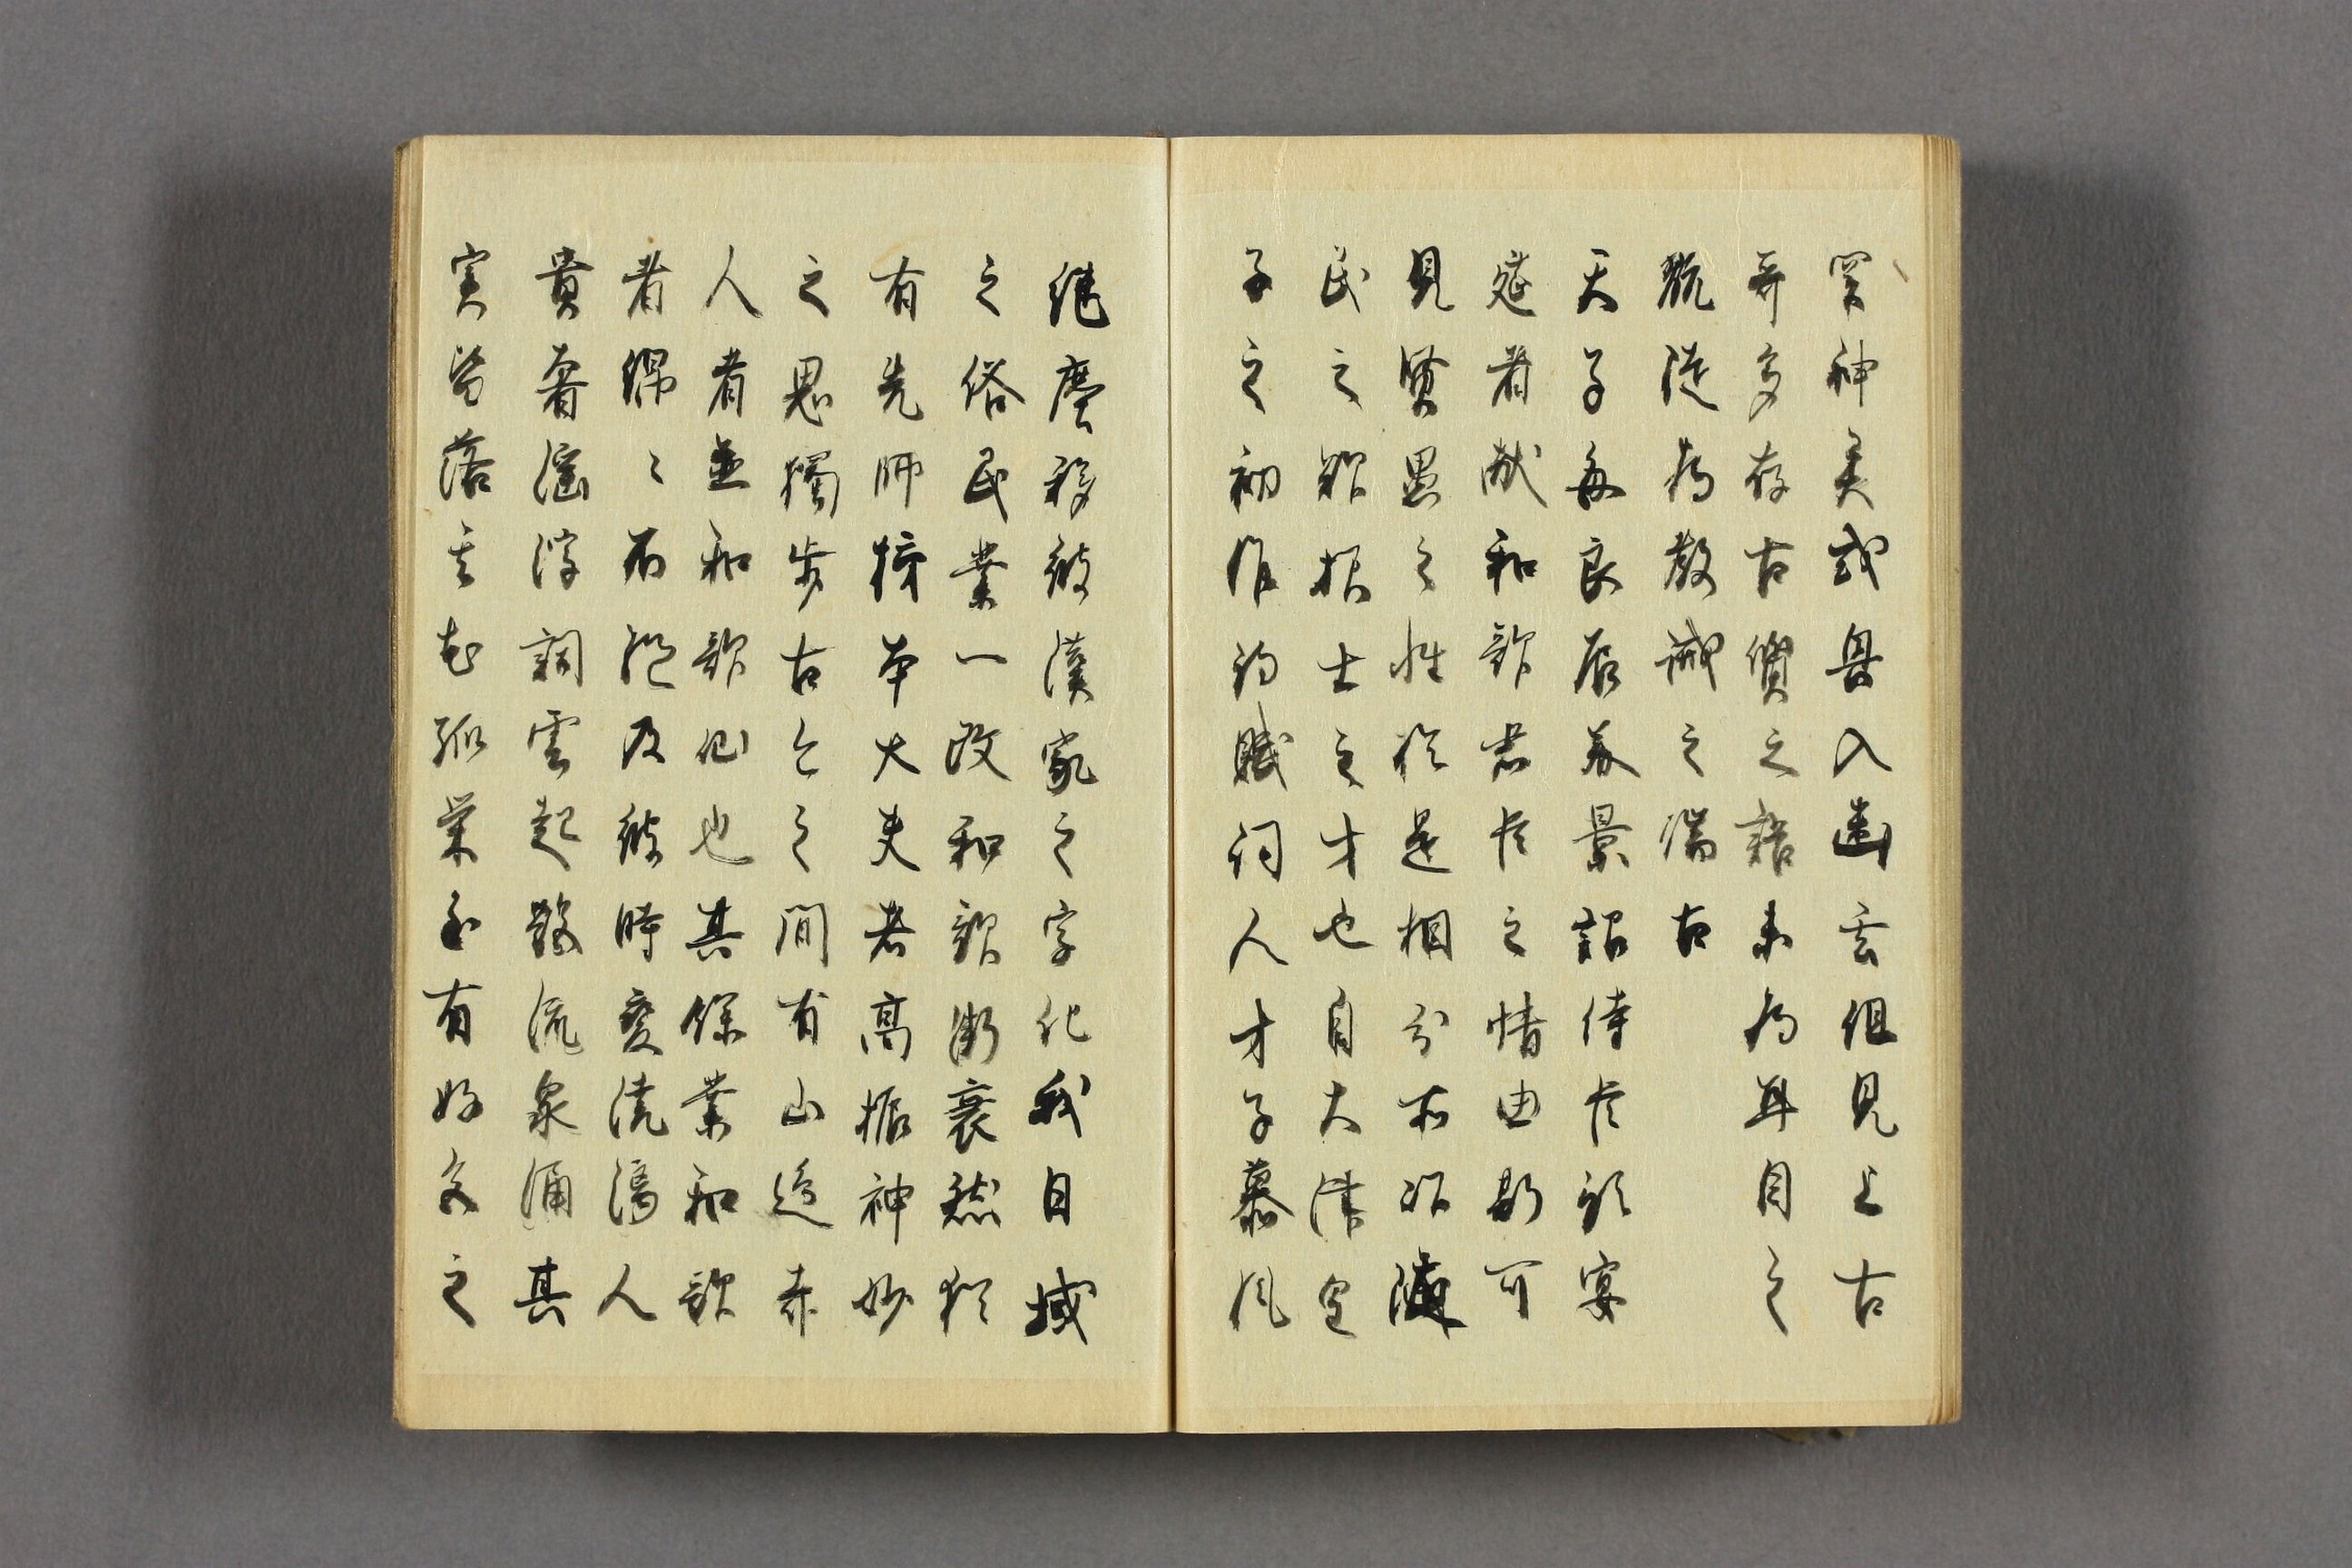 関神異或興入幽玄但見上古
哥多存古質之語未為耳目之
翫徒為教誡之端古
天子每良辰美景詔侍臣預宴
筵者献和歌君臣之情由斯可
見賢愚之性於是相分所以随
民之欲択士之才也自大津皇
子之初作詩賦詞人才子慕風
継塵移彼漢家之字化我日域
之俗民業一改和歌漸衰然猶
有先師柿本大夫者高振神妙
之思獨歩古今之間有山邊赤
人者並和歌仙也其餘業和歌
者綿々不絶及彼時変澆漓人
貴奢淫浮詞雲起艶流泉涌其
実皆落其花孤栄至有好色之